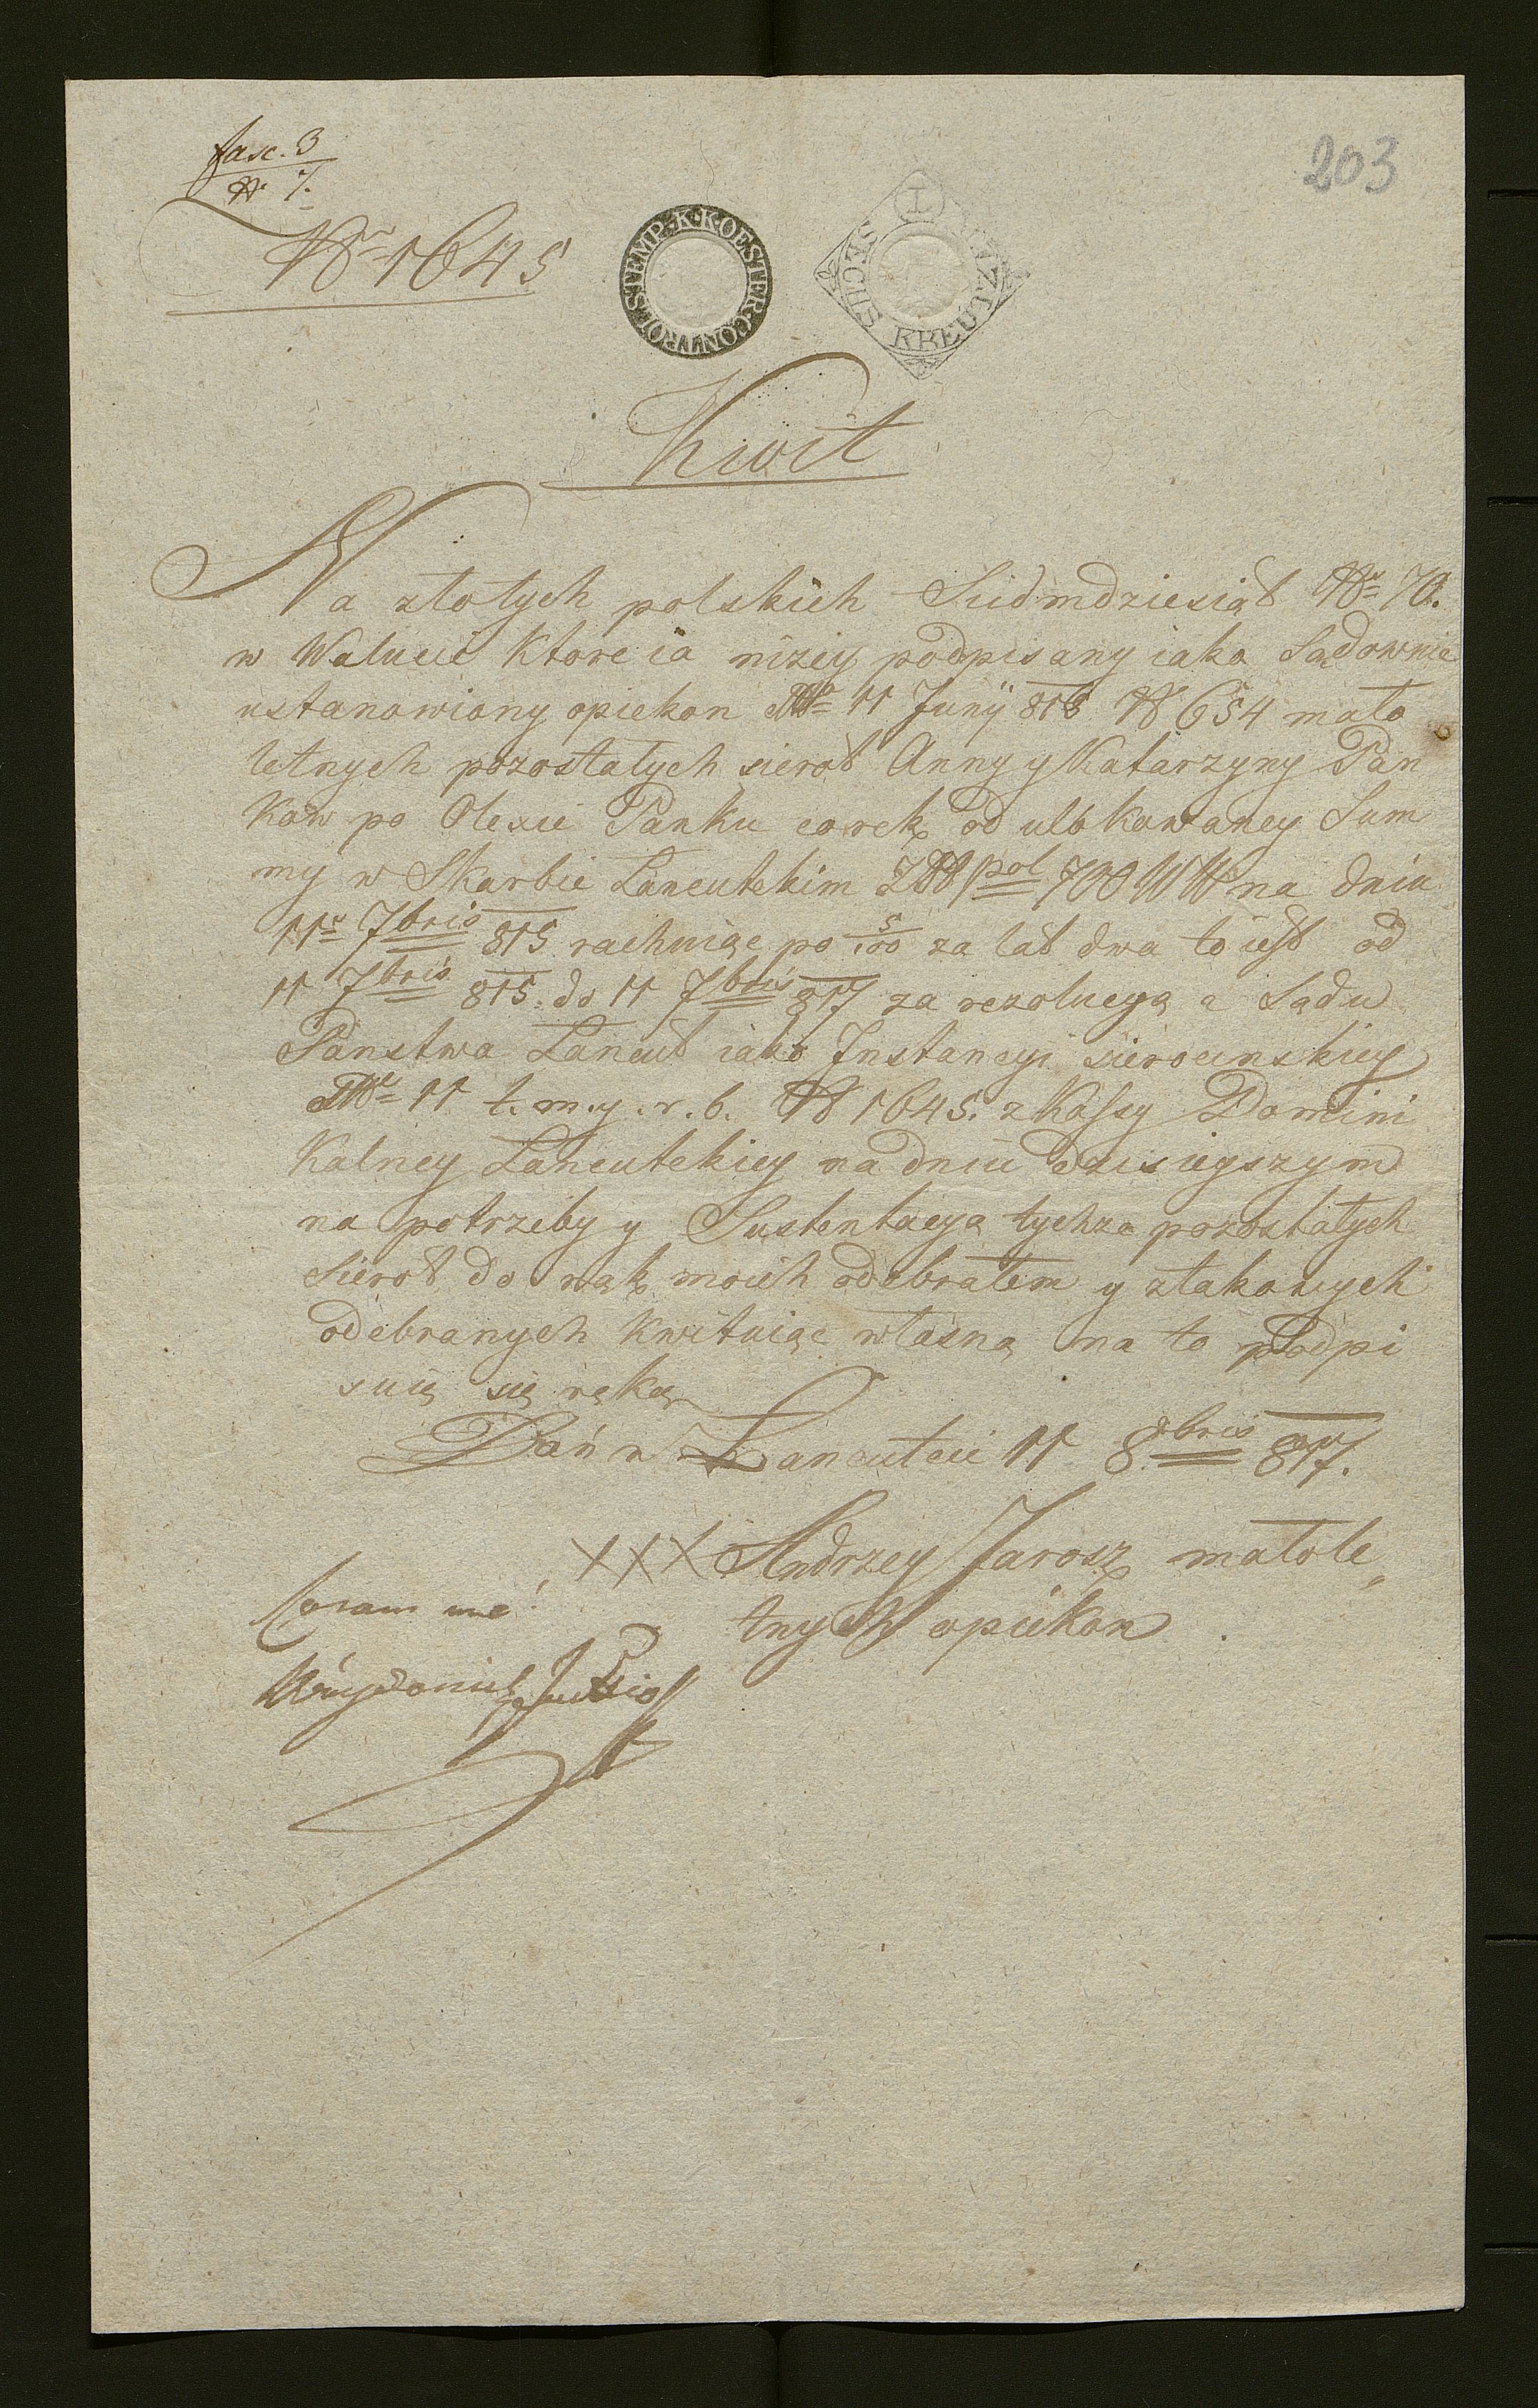 fasc. 3
N. 7.
203
Nr 1645
K.K.OESTER.CONTROL.STEMP.
SECHS KREUTZER
Kwit
Na złotych polskich Siedmdziesiąt Nr 70.
w Walucie ktore ia niżey podpisany iako Sądownie
ustanowiony opiekon 11 Junÿ 815 N 654 mało
letnych pozostałych sierot Anny y Katarzyny Pan
kow po Olexie Panku corek od ulokowaney Sum
my w Skarbie Lancutskim pol 700 WW na dniu
11 7bris 815 rachuiąc po 5/100 za lat dwa to iest od
11 7bris 815. do 11 7bris 817 za rezolucyą a Sądu
Państwa Lancut iako Instancyi sierocinskiey
11 t.m.y.r.b. N 1645. z Kassy Domini
kalney Lancutskiey na dniu dzisieyszym
na potrzeby y Sustentacyą tychże pozostałych
sierot do rąk moich odebrałem y ztakowych
odebranych kwituiąc własną na to podpi
suię się ręką
Dań w Lancutcie 11 8bris 817.
XXX Andrzey Jarosz małole„
tnych opiekon
Coram me!